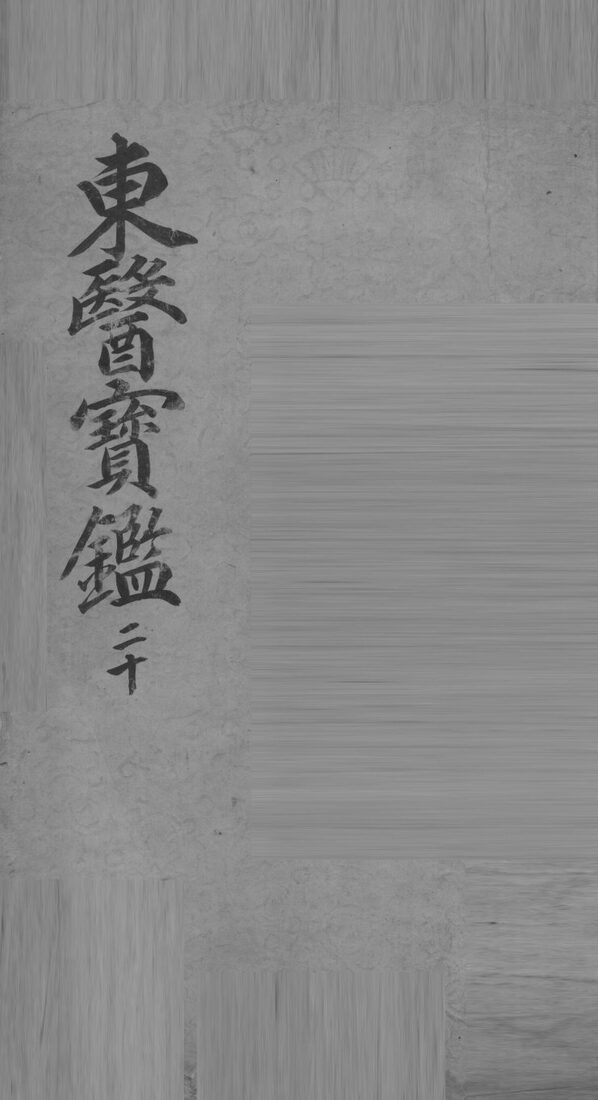 東醫寶鑑 二十